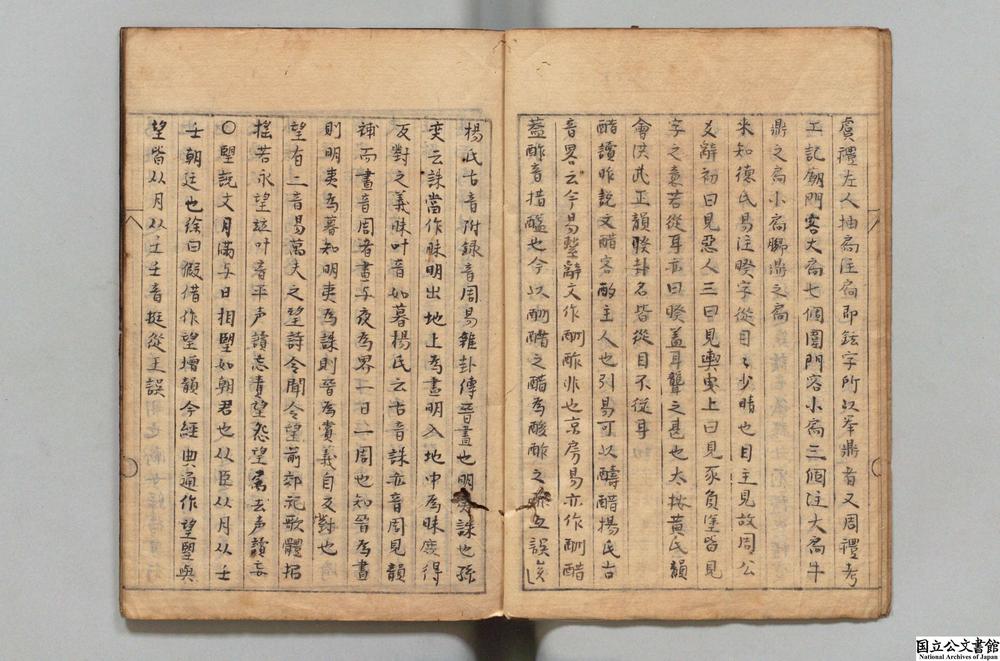 虞禮左人抽扃注扃即鉉字所以举鼎者又周禮考
工記廟門容大扃七個闈門容小扃三個注大扃牛
鼎之扃小扃膷鼎之扃
来知德氏易注睽字從目目少睛也目主見故周公
爻辭初曰見惡人三曰見輿曳上曰見豕負塗皆見
字之意若從耳亦曰睽盖耳聾之甚也大抵黄氏韻
會洪武正韻睽卦名皆從目不從耳
醋讀昨説文醋客酌主人也引易可以醻醋揚氏古
音畧云今易繫辭文作酬酢非也京房易亦作酬醋
蓋酢音措醯也今以酬醋之醋為酸酢之誤
楊氏古音附録音周易雜卦傳晉晝也明夷誅也孫
奕云誅當作昧明出地上為晝明入地中為昧庶得
反對之義昧叶音如暮楊氏云古音誅亦音周見韻
補而晝音周者晝与夜為界一日一周也知晉為晝
則明夷為暮知明夷為誅則晉為賞義自反對也
望有二音易萬夫之望詩令聞令望前郊祀歌體招
揺若永望竝叶音平声讀忘責望怨望為去声讀妄
〇朢説文月滿与日相朢如朝君也从臣从月从壬
壬朝廷也徐曰假借作望增韻今經典通作望朢與
望皆从月从壬壬音挺從王誤
国立公文書館
National Archives of Japan